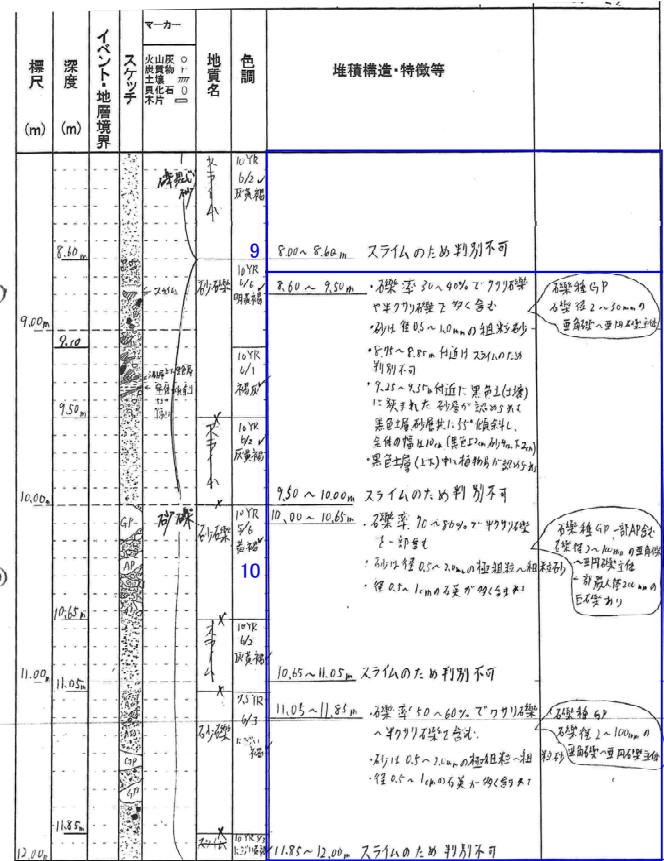 標尺
(m)
深度
(m)
イベント・地層境界
スケッチ
マーカー
火山灰 ○
炭質物 r
土壌
貝化石
木片
地質名
色調
堆積構造・特徴等
礫混じり砂
スライム
10YR
6/2
灰黄褐
8.60m
9
8.00～8.60m スライムのため判別不可
砂礫
10YR
6/6
明黄褐
スライム
8.60～9.50m ・礫率30～40%でクサリ礫
や半クサリ礫を多く含む
・砂は径0.5～1.0mmの粗粒砂
・8.75～8.85m付近はスライムのため
判別不可
・9.25～9.35m付近に黒色土(土壌)
に挟まれた砂層が認められる
黒色土層,砂層共に55°傾斜し、
全体の幅は10cm
・黒色土層(上下)中に植物片が認められる
礫種GP
礫径2～50mmの
亜角礫～亜円礫主体
9.00m
9.10
10YR
6/1
褐灰
9.50m
スライム
10YR
6/2
灰黄褐
10.00m
9.50～10.00m スライムのため判別不可
砂礫
GP
AP
砂礫
10YR
5/6
黄褐
10
10.00～10.65m ・礫率70～80%で半クサリ礫
を一部含む
・砂は径0.5～2.0mmの極粗粒～粗粒砂
・径0.5～1cmの石英が多く含まれ
礫種GP一部AP含む
礫径2～100mmの亜角礫
～亜円礫主体
一部最大径200mmの
巨礫あり
10.65m
スライム
10YR
6/2
灰黄褐
11.00m
11.05m
10.65～11.05m スライムのため判別不可
砂礫
7.5YR
6/3
にぶい褐
11.05～11.85m ・礫率50～60%でクサリ礫
～半クサリ礫を含む
・砂は0.5～2.0mmの極粗粒～粗粒砂
・径0.5～1cmの石英が多く含まれ
礫種GP
礫径2～100mmの
亜角礫～亜円礫主体
GP
GP
11.85m
スライム
12.00m
11.85～12.00m スライムのため判別不可